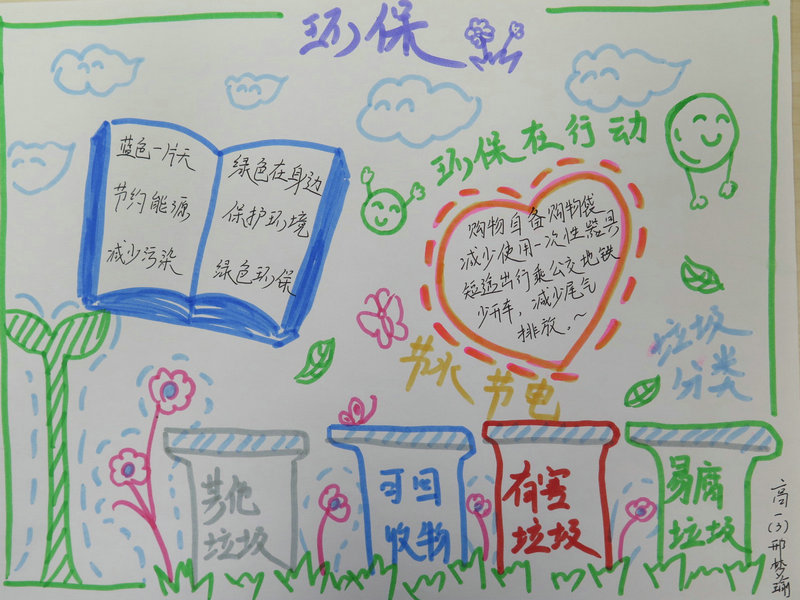 环保
环保在行动
蓝色一片天
节约能源
减少污染
绿色在身边
保护环境
绿色环保
购物自备购物袋
减少使用一次性器具
短途出行乘公交地铁
少开车，减少尾气
排放.~
节水 节电
垃圾
分类
其他
垃圾
可回
收物
有害
垃圾
易腐
垃圾
高一(3)邢梦瑜